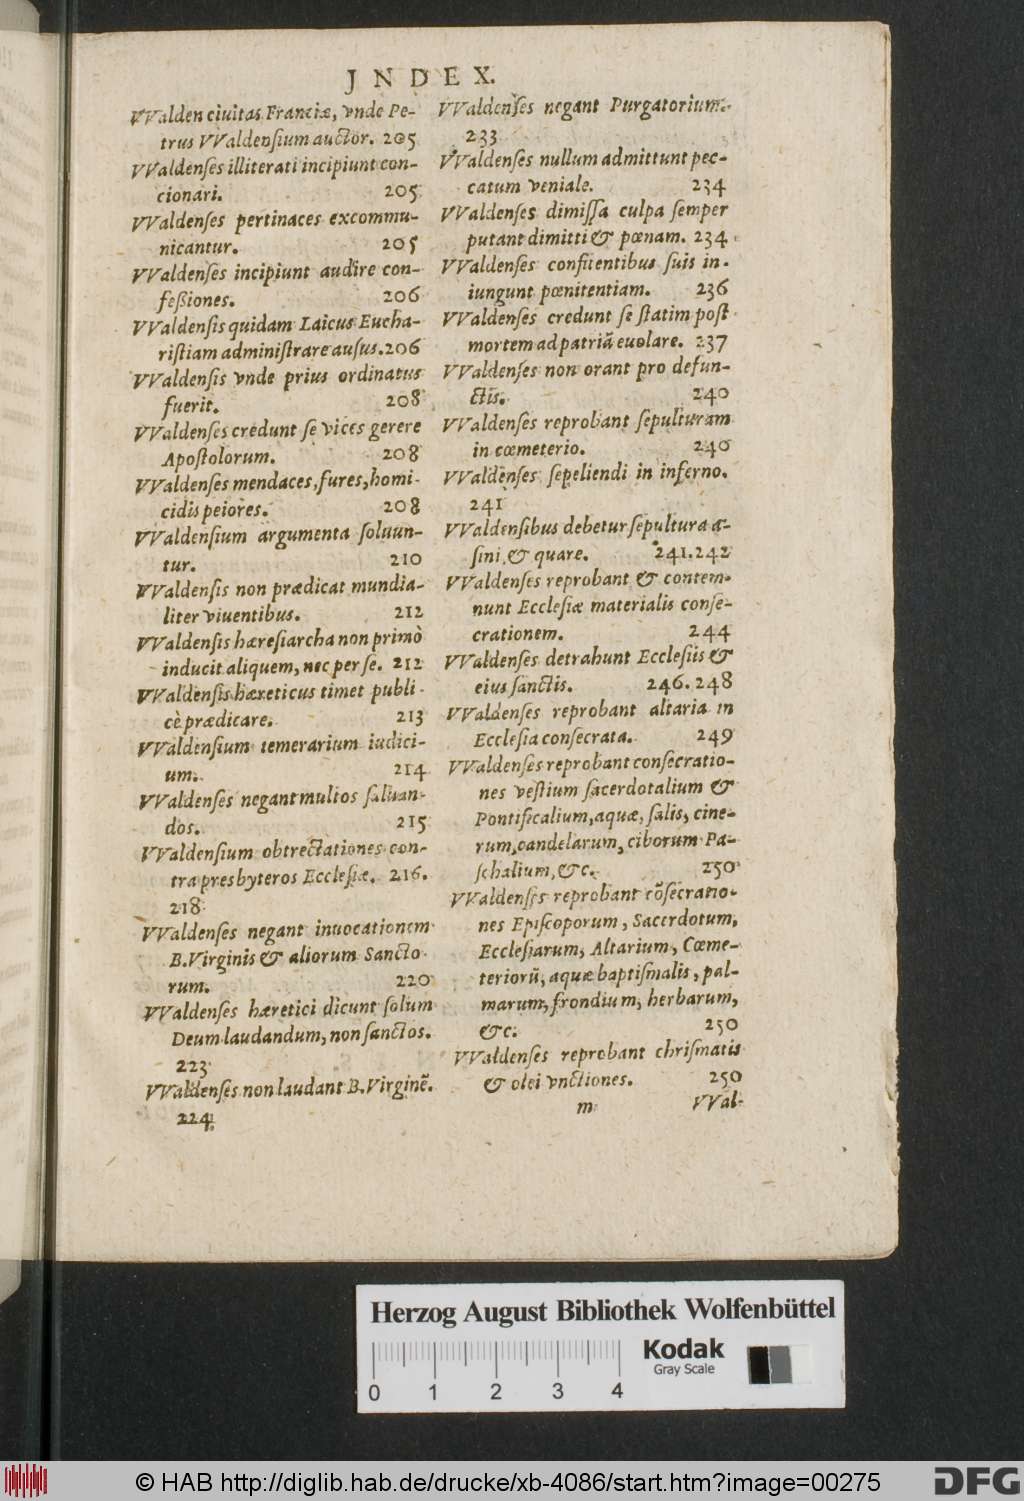 JNDEX.
VValden ciuitas Franciæ, vnde Pe-
trus VValdensium auctor. 205
VValdenses illiterati incipiunt con-
cionari. 205
VValdenses pertinaces excommu-
nicantur. 205
VValdenses incipiunt audire con-
feßiones. 206
VValdensis quidam Laicus Eucha-
ristiam administrare ausus. 206
VValdensis vnde prius ordinatus
fuerit. 208
VValdenses credunt se vices gerere
Apostolorum. 208
VValdenses mendaces, fures, homi-
cidis peiores. 208
VValdensium argumenta soluun-
tur. 210
VValdensis non prædicat mundia-
liter viuentibus. 212
VValdensis hæresiarcha non primò
inducit aliquem, nec per se. 212
VValdensis hæreticus timet publi-
cè prædicare. 213
VValdensium temerarium iudici-
um. 214
VValdenses negant multos saluan-
dos. 215
VValdensium obtrectationes con-
tra presbyteros Ecclesiæ. 216.
218
VValdenses negant inuocationem
B. Virginis & aliorum Sancto-
rum. 220
VValdenses hæretici dicunt solum
Deum laudandum, non sanctos.
223
VValdenses non laudant B. Virginē.
224
VValdenses negant Purgatorium.
233
VValdenses nullum admittunt pec-
catum veniale. 234
VValdenses dimissa culpa semper
putant dimitti & pœnam. 234
VValdenses confitentibus suis in-
iungunt pœnitentiam. 236
VValdenses credunt se statim post
mortem ad patriā euolare. 237
VValdenses non orant pro defun-
ctis. 240
VValdenses reprobant sepulturam
in cœmeterio. 240
VValdenses sepeliendi in inferno.
241
VValdensibus debetur sepultura a-
sini, & quare. 241.242
VValdenses reprobant & contem-
nunt Ecclesiæ materialis conse-
crationem. 244
VValdenses detrahunt Ecclesiis &
eius sanctis. 246.248
VValdenses reprobant altaria in
Ecclesia consecrata. 249
VValdenses reprobant consecratio-
nes vestium sacerdotalium &
Pontificalium, aquæ, salis, cine-
rum, candelarum, ciborum Pa-
schalium, &c. 250
VValdenses reprobant cōsecratio-
nes Episcoporum, Sacerdotum,
Ecclesiarum, Altarium, Cœme-
teriorū, aquæ baptismalis, pal-
marum, frondium, herbarum,
&c. 250
VValdenses reprobant chrismatis
& olei vnctiones. 250
m VVal-
Herzog August Bibliothek Wolfenbüttel
Kodak
Gray Scale
0 1 2 3 4
© HAB http://diglib.hab.de/drucke/xb-4086/start.htm?image=00275
DFG